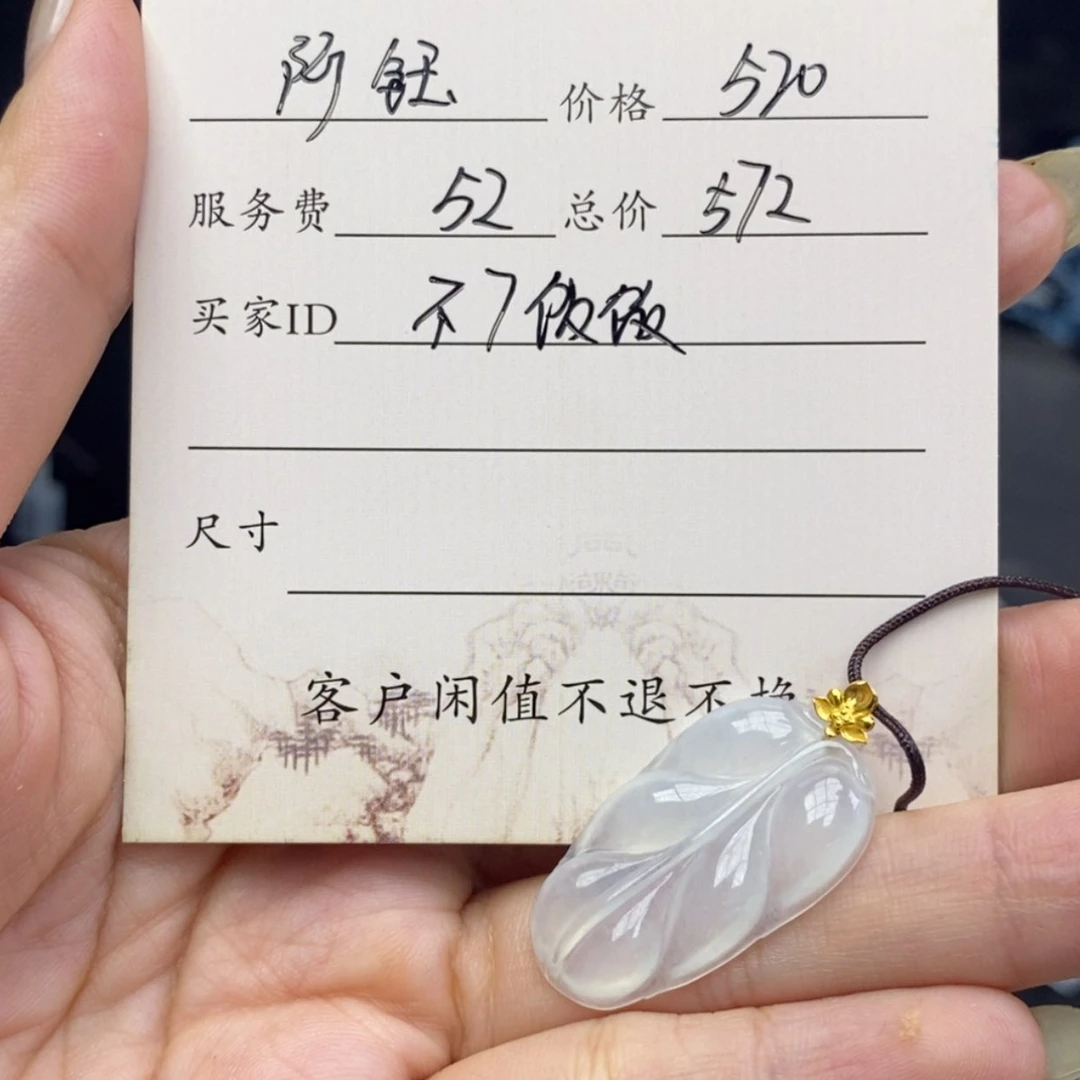 阿钰 价格 520
服务费 52 总价 572
买家ID 不了做做
尺寸
客户闲值不退不换